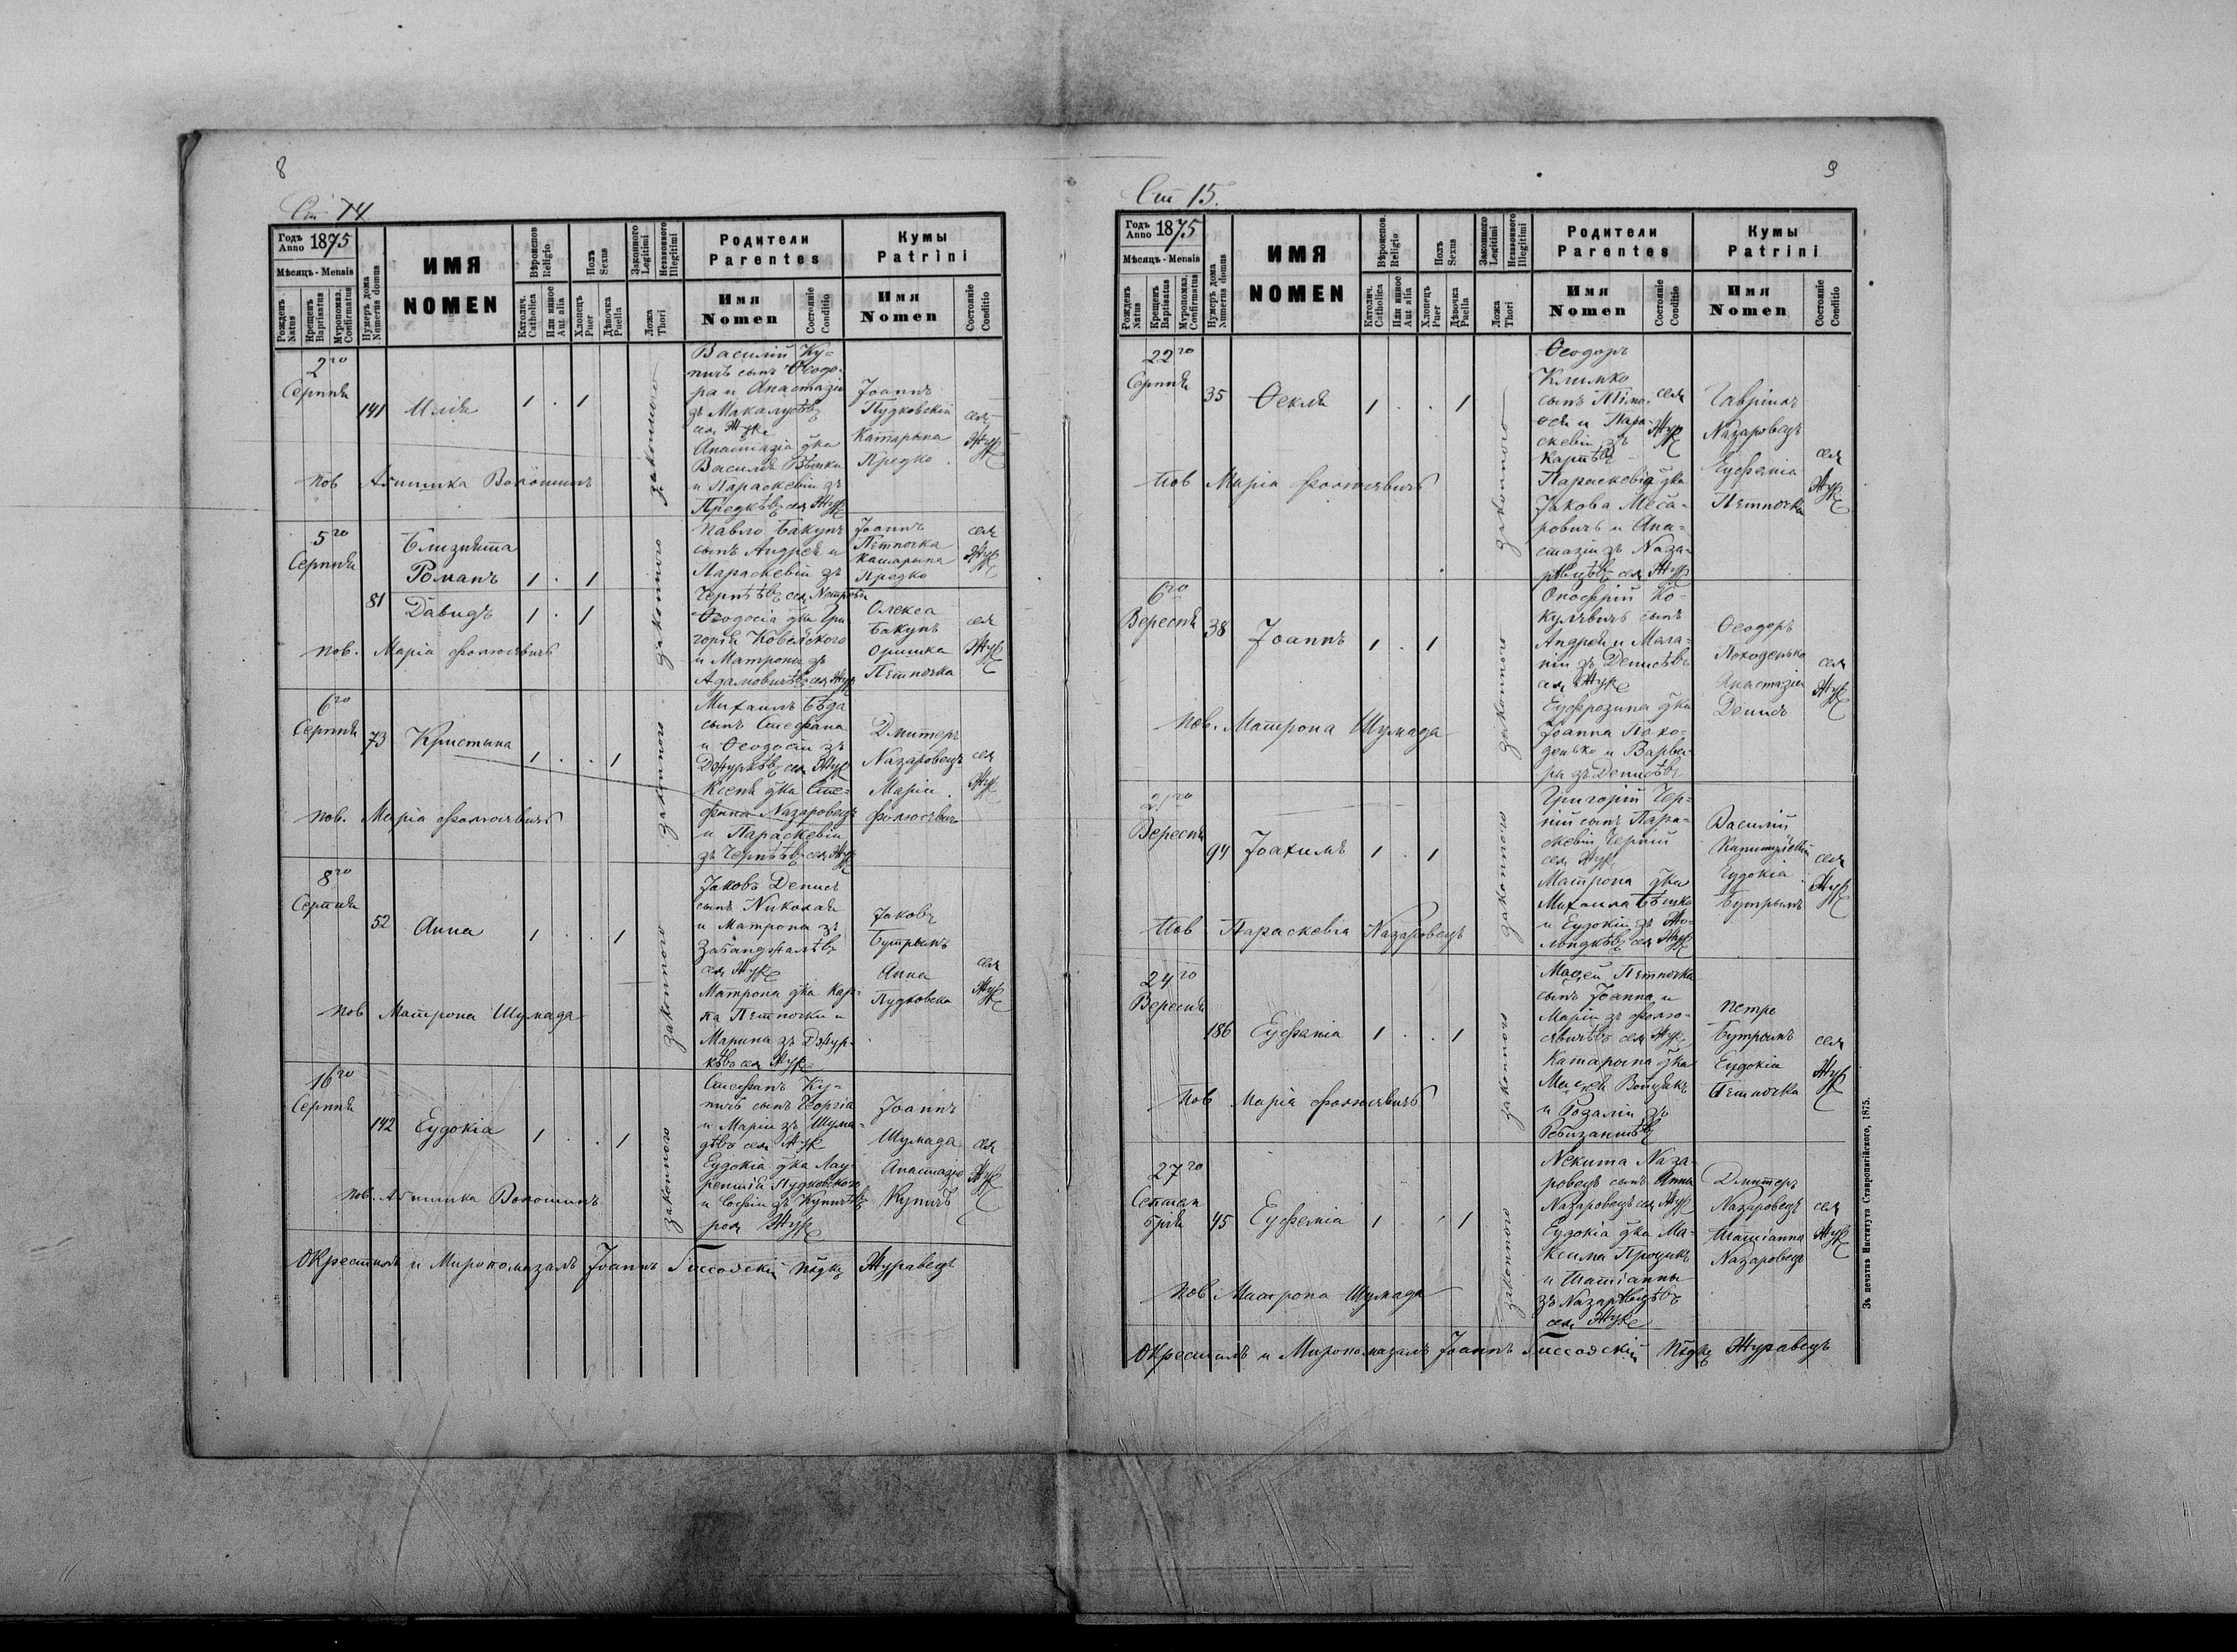 8
Ст 14.
Годъ Anno 1875
Мѣсяцъ - Mensis
Рожденъ Natus
Крещенъ Baptisatus
Муропомаз. Confirmatus
Нумеръ дома Numerus domus
ИМЯ
NOMEN
Вѣроиспов Religio
Католич. Catholica
Или инное Aut alia
Полъ Sexus
Хлопецъ Puer
Дѣвочка Puella
Законного Legitimi
Незаконного Illegitimi
Ложа Thori
Родители
Parentes
Имя
Nomen
Состояніе Conditio
Кумы
Patrini
Имя
Nomen
Состояніе Conditio
2го
Серпня
141 Илія 1 . 1
законного
Василій Ку-
пичъ сынъ Ѳеодо-
ра и Анастазіи
зъ
сел Жур
Анастазія дка
Василя
и Параскевіи зъ
Предкѣвъ сел Жур
Іоаннъ
Пудковскій
Катарына
Предко
сел
Жур
пов Агншка Волошинъ
5го
Серпня
81
Близнята
Романъ 1 . 1
Давидъ 1 . 1
законного
Павло Бакунъ
сынъ Андрея и
Параскевіи зъ
сел
Ѳеодосія дка Гри
горія
и Матроны зъ
Адамовичѣвъ сел Жур
Іоаннъ
Пѣтночка
Катарына
Предко
Олекса
Бакунъ
Оришка
Пѣтночка
сел
Жур
сел
Жур
пов. Марія Фолюсѣвичъ
6го
Серпня
73 Кристина 1 . . 1
законного
Михаилъ Бѣда
сынъ Стефана
и Ѳеодосіи зъ
Джуркѣвъ сел Жур
Ксеня дка Сте-
фана Назаровецъ
и Параскевіи
зъ Чернѣѣвъ сел Жур
Дмитеръ
Назаровецъ
Марія
Фолюсѣвичъ
сел
Жур
пов. Марія Фолюсѣвичъ
8го
Серпня
52 Анна 1 . . 1
законного
Іаковъ Денисъ
сынъ Николая
и Матроны зъ
сел Жур
Матрона дка Кар-
па Пѣтночки и
Марины зъ Джур-
кѣвъ сел Жур
Іаковъ
Бутрынъ
Анна
Пудковска
сел
Жур
пов Матрона Шумада
16го
Серпня
142 Еудокіа 1 . . 1
законного
Стефанъ Ку-
пичъ сынъ Георгіа
и Маріи зъ Шума-
дѣвъ сел Жур
Еудокіа дка Лау-
рентія Пудковского
и Софіи зъ Купичѣвъ
рол Жур
Іоаннъ
Шумада
Анастазіа
Купичъ
сел
Жур
пов. Агншка Волошинъ
Окрестилъ и Миропомазалъ Іоаннъ Гиссовскій Журавецъ
9
Ст 15.
Годъ Anno 1875
Мѣсяцъ - Mensis
Рожденъ Natus
Крещенъ Baptisatus
Муропомаз. Confirmatus
Нумеръ дома Numerus domus
ИМЯ
NOMEN
Вѣроиспов. Religio
Католич. Catholica
Или инное Aut alia
Полъ Sexus
Хлопецъ Puer
Дѣвочка Puella
Законного Legitimi
Незаконного Illegitimi
Ложа Thori
Родители
Parentes
Имя
Nomen
Состояніе Conditio
Кумы
Patrini
Имя
Nomen
Состояніе Conditio
22го
Серпня
35 Ѳекля 1 . . 1
законного
Ѳеодоръ
Климко
сынъ Тімо-
ѳея и Пара-
скевіи зъ
Карпѣвъ
сел
Жур
Параскевія дка
Іакова Меса-
ровичъ и Ана-
стазіи зъ Наза-
рѣвцѣвъ сел Жур
Гавріилъ
Назаровецъ
Еуфемія
Пѣтночка
сел
Жур
пов Марія Фолюсѣвичъ
6го
Вересня
38 Іоаннъ 1 . 1
законного
Онофрій Ко-
кулѣвичъ сынъ
Андрея и Мела-
ніи зъ Денисѣвъ
сел Жур
Еуфрозина дка
Іоанна Походенько и Варва-
ры зъ Денисѣвъ
Ѳеодоръ
Походенько
Анастазіа
Денисъ
сел
Жур
пов. Матрона Шумада
21го
Вересня
94 Іоахимъ 1 . 1
законного
Григорій Чер-
ній сынъ Пара-
скевіи Черній
сел Жур
Матрона дка
Михаила
и Еудокіи зъ
сел Жур
Василій
Еудокіа
Бутрынъ
сел
Жур
пов Параскевіа Назаровецъ
24го
Вересня
186 Еуфеміа 1 . . 1
законного
Маѳей Пѣтночка
сынъ Іоанна и
Маріи зъ Фолю-
сѣвичѣвъ сел Жур
Катарына дка
Маѳея Войцѣхъ
и Розаліи зъ
Петро
Бутрынъ
Еудокіа
Пѣтночка
сел
Жур
пов Марія Фолюсѣвичъ
27го
Септем
брія
45 Еуфеміа 1 . . 1
законного
Никита Наза-
ровецъ сынъ Анны
Назаровецъ сел Жур
Еудокіа дка Ма-
ксима Процикъ
и Татіанны
зъ Назарѣвцѣвъ
сел Жур
Дмитеръ
Назаровецъ
Татіанна
Назаровецъ
сел
Жур
пов Матрона Шумада
Окрестилъ и Миропомазалъ Іоаннъ Гиссовскій Журавецъ
Зъ печатнѣ Института Ставропигійского, 1875.